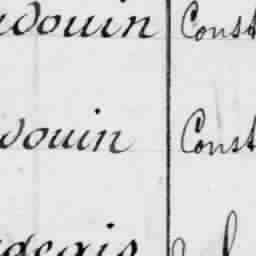 douin Const
douin Const
degais